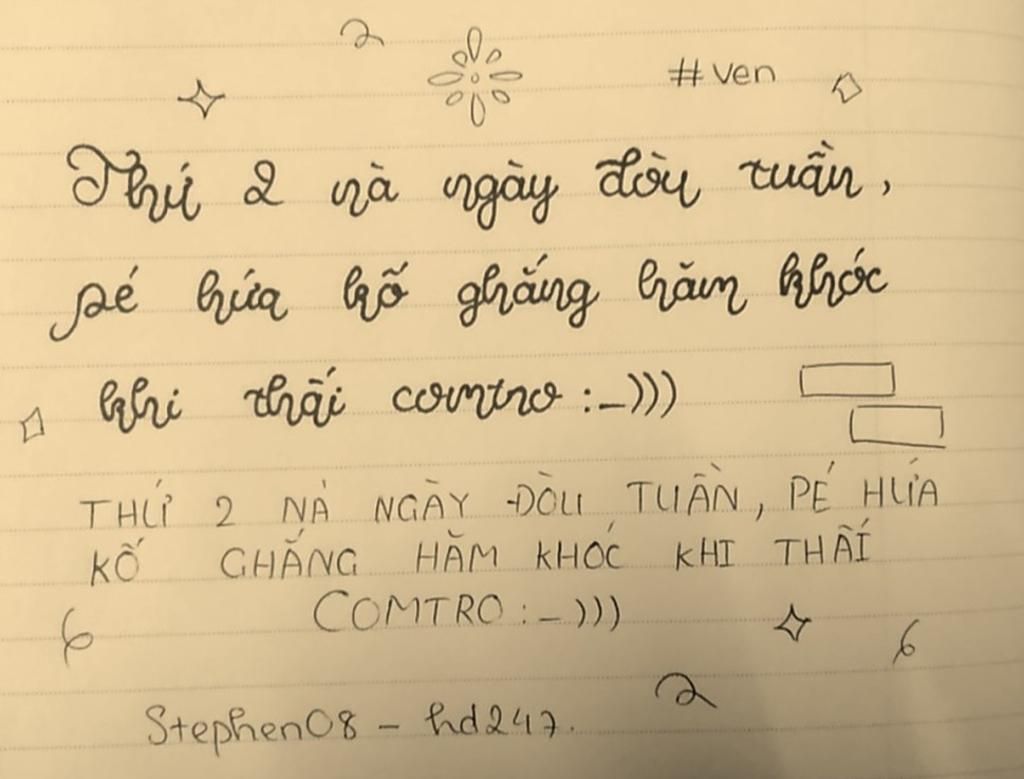 #ven
Thứ 2 nà ngày đòu tuần,
pé hứa kố ghắng hăm khóc
khi thấi comtro :_)))
THỨ 2 NÀ NGÀY ĐÒU TUẦN, PÉ HỨA
KỐ GHẮNG HĂM KHÓC KHI THẤI
COMTRO :_)))
Stephen08 - hd247.